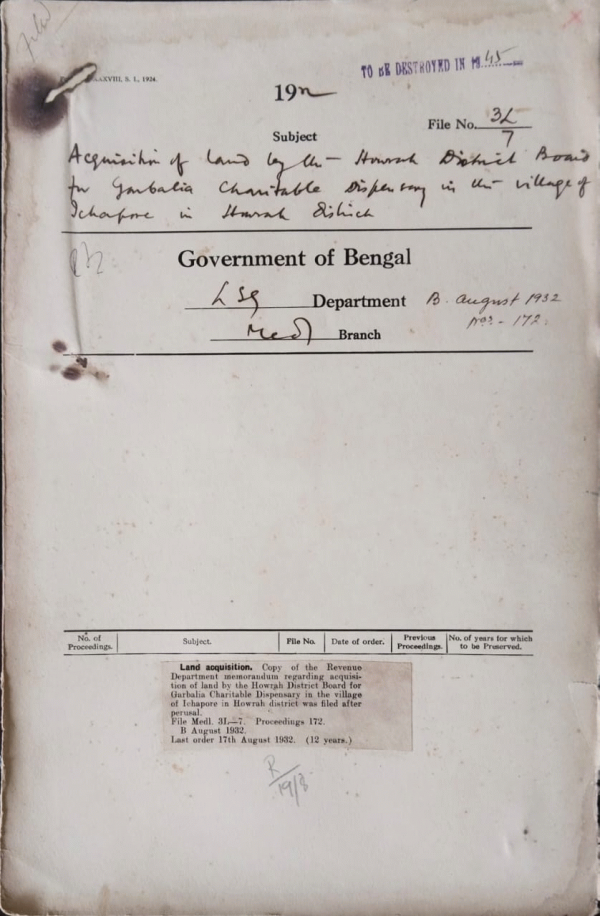 XXXVIII, S. I., 1924.
TO BE DESTROYED IN 1945
19
File No. 3L/7
Subject
Acquisition of land by the Howrah District Board
for Garbalia Charitable Dispensary in the village of
Ichapore in Howrah District
Government of Bengal
LSG Department B. August 1932
Nos - 172.
Medl Branch
No. of Proceedings. Subject. File No. Date of order. Previous Proceedings. No. of years for which to be Preserved.
Land acquisition. Copy of the Revenue
Department memorandum regarding acquisi-
tion of land by the Howrah District Board for
Garbalia Charitable Dispensary in the village
of Ichapore in Howrah district was filed after
perusal.
File Medl. 3L—7. Proceedings 172.
B August 1932.
Last order 17th August 1932. (12 years.)
R
19/8